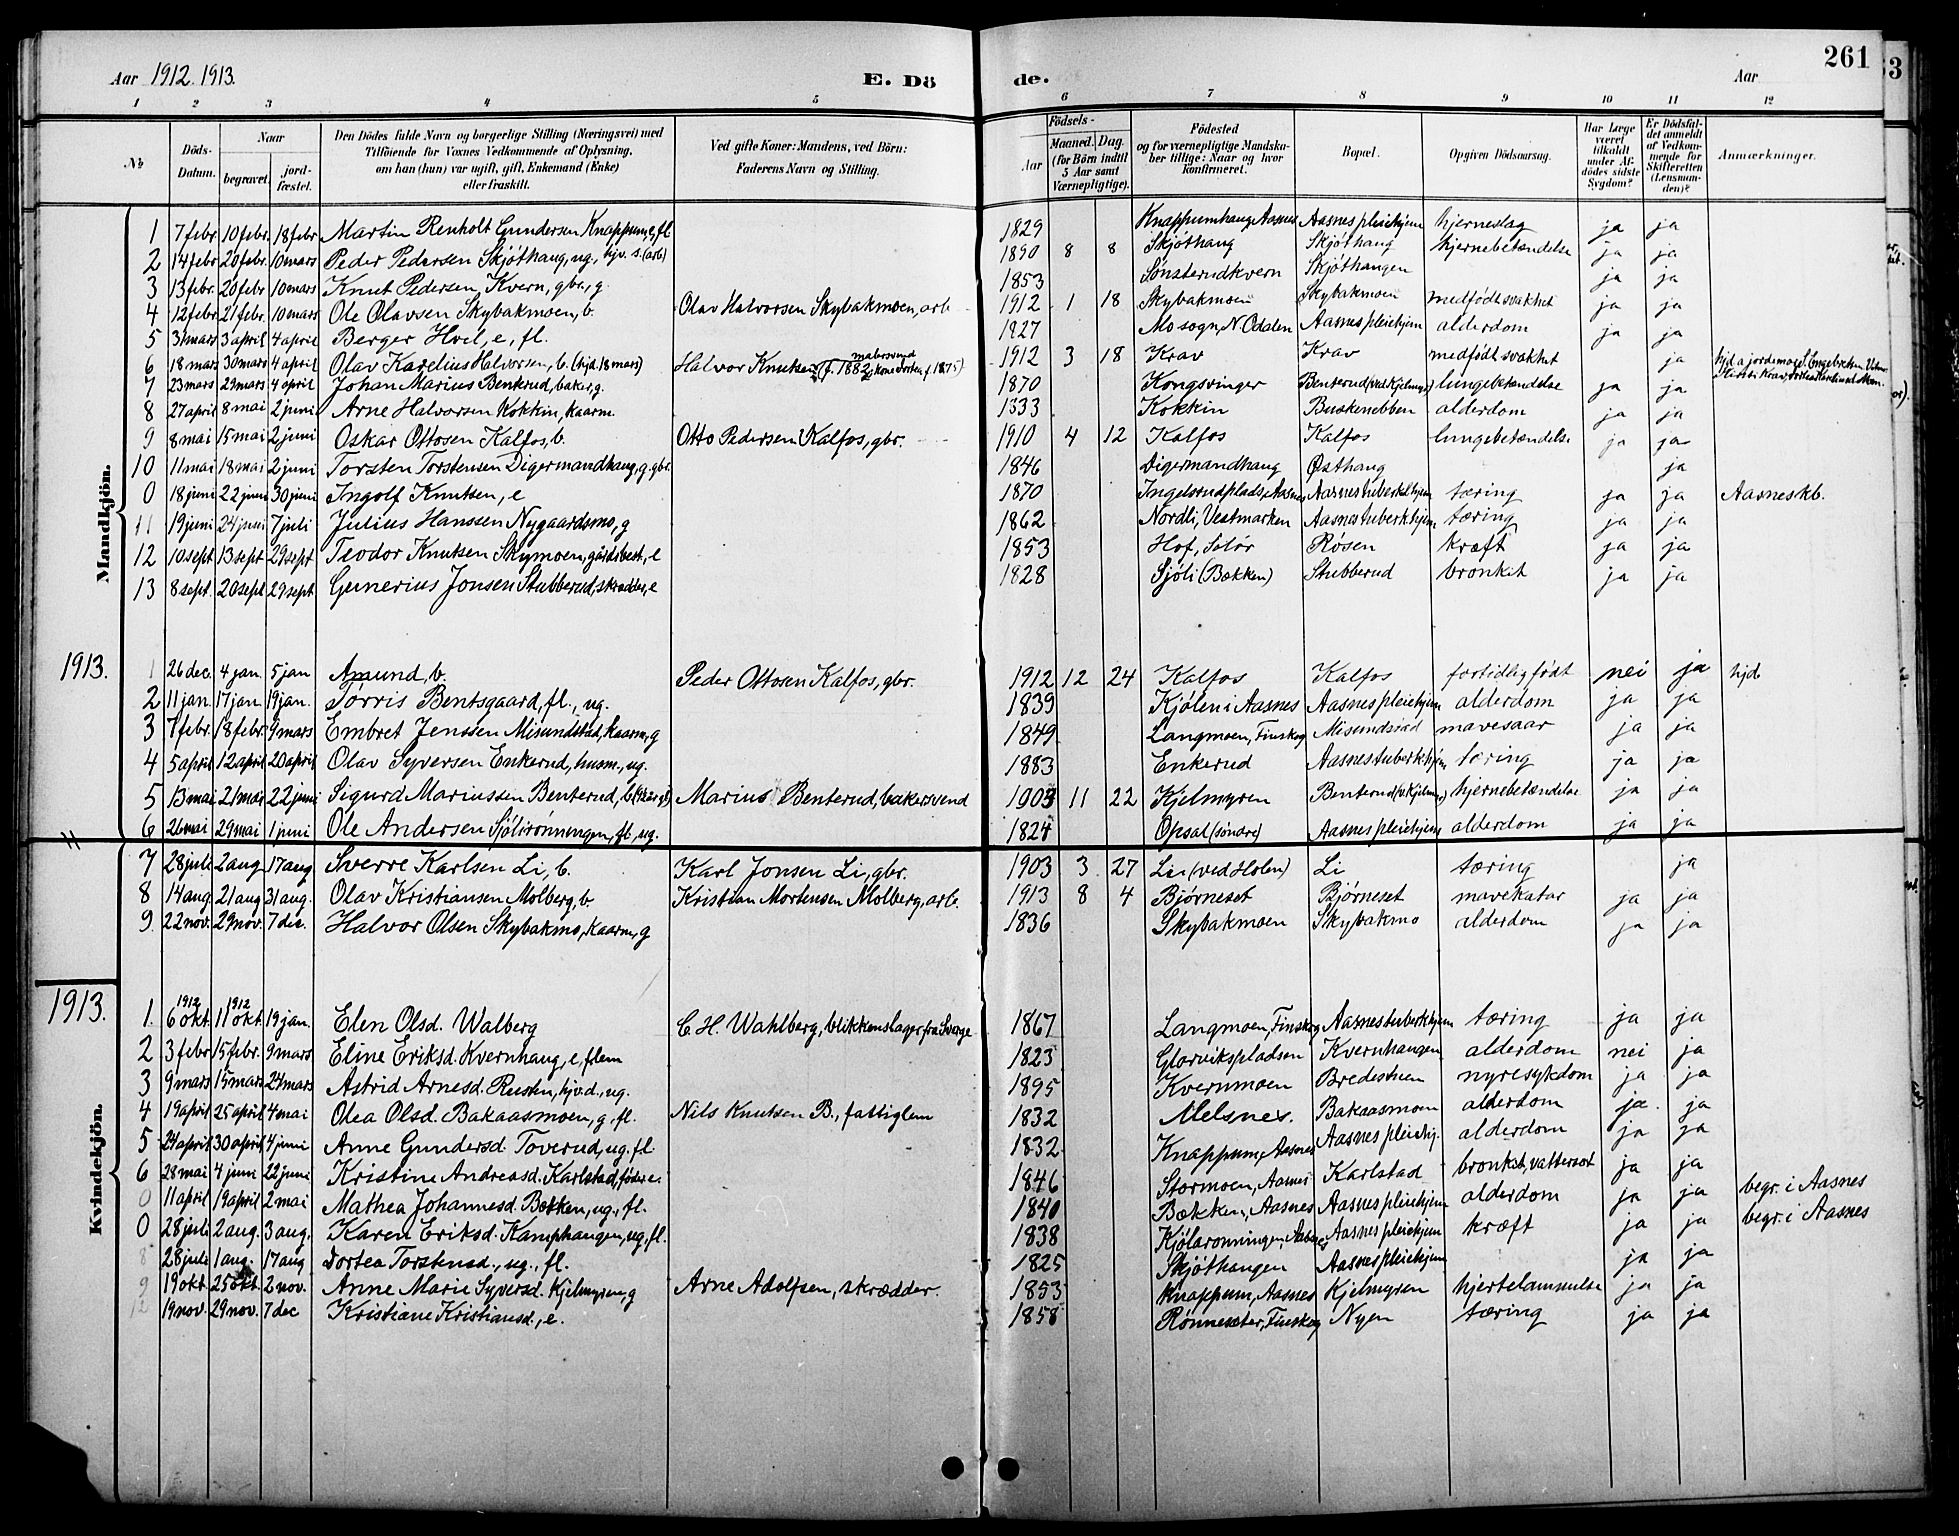 Aar 1912. 1913.
E. Dö de.
Aar
261
1 2 3 4 5 6 7 8 9 10 11 12
No
Döds-Datum.
Naar
begravet.
jord-fæstet.
Den Dödes fulde Navn og borgerlige Stilling (Næringsvei) med
Tilföiende for Voxnes Vedkommende af Oplysning,
om han (hun) var ugift, gift, Enkemand (Enke)
eller fraskilt.
Ved gifte Koner: Mandens, ved Börn:
Faderens Navn og Stilling.
Födsels-
Aar
Maaned. Dag.
(for Börn indtil 5 Aar samt Værnepligtige).
Födested
og for værnepligtige Mandska-
ber tillige: Naar og hvor
konfirmeret.
Bopæl.
Opgiven Dödsaarsag.
Har Læge været tilkaldt under Afdödes sidste Sygdom?
Er Dödsfaldet anmeldt af Vedkommende for Skifteretten (Lensmanden)?
Anmærkninger.
Mandkjön.
1 7 febr 10 febr. 18 febr Martin Renholt Gundersen Knappum, e, fl 1829 Knappumhaug Aasnes Aasnes pleiehjem hjerneslag ja ja
2 14 febr 20 febr. 10 mars Peder Pedersen Skjöthaug, ug., hjv. s. (arb) 1890 8 8 Skjöthaug Skjöthaug hjernebetændelse ja ja
3 13 febr. 20 febr 10 mars Knut Pedersen, Kvern, gbr., g. 1853 Sönsterudkvern Skjöthaugen ja ja
4 12 febr 21 febr. 10 mars Ole Olavsen Skybakmoen, b. Olav Halvorsen Skybakmoen, arb 1912 1 18 Skybakmoen Skybakmoen medfödt svakhet ja ja
5 3 mars 3 april 4 april Berger Hvel, e, fl. 1827 Mo sogn, N. Odalen Aasnes pleiehjem alderdom ja ja
6 18 mars 30 mars 4 april Olav Karelius Halvorsen, b. (hjd. 18 mars) Halvor Knutsen (f. 1882, kone Dorten f. 1875) malersvend 1912 3 18 Krav Krav medfödt svakhet ja
7 23 mars 29 mars 4 april Johan Marius Benterud, baker, g. 1870 Kongsvinger Benterud (ved Kjelmyr) lungebetændelse ja ja
8 27 april 8 mai 2 juni Arne Halvorsen Kokkin, kaarm. 1833 Kokkin Buskenebben alderdom ja ja
9 8 mai 15 mai 2 juni Oskar Ottosen Kalfos, b. Otto Pedersen Kalfos, gbr. 1910 4 12 Kalfos Kalfos lungebetændelse ja ja
10 11 mai 18 mai 2 juni Torsten Torstensen Digermandhaug, g. gbr. 1846 Digermandhaug Östhaug ja
0 18 juni 22 juni 30 juni Ingolf Knutsen, e 1870 Ingelsrudplads, Aasnes Aasnes tuberkelhjem tæring ja ja Aasnes kb.
11 19 juni 24 juni 7 juli Julius Hanssen Nygaardsmo, g 1862 Nordli, Vestmarken Aasnes tuberk.hjem tæring ja ja
12 10 sept 13 sept 29 sept Teodor Knutsen Skymoen, gårdsbest., e 1853 Hof, Solör Rösen kræft ja ja
13 8 sept. 20 sept 29 sept Gunerius Jonsen Stubberud, skrædder, e 1828 Sjöli (Bækken) Stubberud bronkit ja ja
1913. 1 26 dec. 4 jan. 5 jan Amund, b. Peder Ottosen Kalfos, gbr. 1912 12 24 Kalfos Kalfos fortidlig födt nei ja hjd
2 11 jan. 17 jan. 19 jan. Törris Bentsgaard, fl., ug. 1839 Kjölen i Aasnes Aasnes pleiehjem alderdom ja ja
3 7 febr. 18 febr. 9 mars Embret Jenssen Misundstad, kaarm, g 1849 Langmoen, Finskog Misundstad mavesaar ja ja
4 5 april 12 april 20 april Olav Syversen Enkerud, husm., ug. 1883 Enkerud Aasnes tuberk.hjem tæring ja ja
5 13 mai 21 mai 22 juni Sigurd Mariussen Benterud, b. Marius Benterud, bakersvend 1903 11 22 Kjelmyren Benterud (v. Kjelmyr) hjernebetændelse ja ja
6 26 mai 29 mai 1 juni Ole Andersen Sjölirönningen, fl, ug. 1824 Opsal (söndre) Aasnes pleiehjem alderdom ja ja
7 28 juli 2 aug 17 aug Sverre Karlsen Li, b. Karl Jonsen Li, gbr. 1903 3 27 Li (ved Holen) Li tæring ja
8 14 aug 21 aug 31 aug. Olav Kristiansen Molberg, b. Kristian Mortensen Molberg, arb. 1913 8 4 Björneset Björneset mavekatar ja ja
9. 22 nov. 29 nov. 7 dec. Halvor Olsen Skybakmo, kaarm., g 1836 Skybakmoen Skybakmo alderdom ja ja
1913.
Kvindekjön.
1. 1912 6 okt. 1912 11 okt. 19 jan. Elen Olsd. Walberg C. H. Wahlberg, blikkenslager fra Sverge 1867 Langmoen, Finskog Aasnes tuberk.hjem tæring ja ja
2 3 febr 15 febr. 9 mars Eline Eriksd. Kvernhaug, e, flem 1823 Glorvikspladsen Kvernhaugen alderdom nei ja
3 9 mars 15 mars 24 mars Astrid Arnesd. Rusten, hjv.d., ug. 1895 Kvernmoen Bredestuen nyresykdom ja ja
4 19 april 25 april 4 mai Olea Olsd. Bakaasmoen, g, fl. Nils Knutsen B., fattiglem 1832 Melsnes. Bakaasmoen alderdom ja ja
5 24 april 30 april 4 juni Anne Gundersd. Toverud, ug. fl. 1832 Knappum, Aasnes Aasnes pleiehj. alderdom ja ja
6 28 mai 4 juni 22 juni Kristine Andreasd. Karlstad, föder. e. 1846 Stormoen, Aasnes Karlstad bronkit, vattersot ja ja
0 11 april 19 april 2 mai Mathea Johannesd. Bækken, ug., fl. 1840 Bækken, Aasnes Aasnes pleiehjem alderdom ja ja begr. i Aasnes
0 28 juli 2 aug. 3 aug. Karen Eriksd. Kamphaugen, ug, fl. 1838 Kjölaronningen, Aasnes Aasnes pleiehjem kræft ja ja begr. i Aasnes
8 28 juli 1 aug. 17 aug Dortea Torstensd., ug., fl. 1825 Skjöthaugen Aasnes pleiehjem ja ja
9 19 okt. 25 okt. 2 nov. Anne Marie Syversd. Kjelmyren, g Arne Adolfsen, skrædder. 1853 Knappum, Aasnes Kjelmyren hjertelammelse ja ja
12 19 nov. 29 nov. 7 dec Kristiane Kristiansd., e. 1858 Rönneseter, Finskog Nyen tæring ja ja